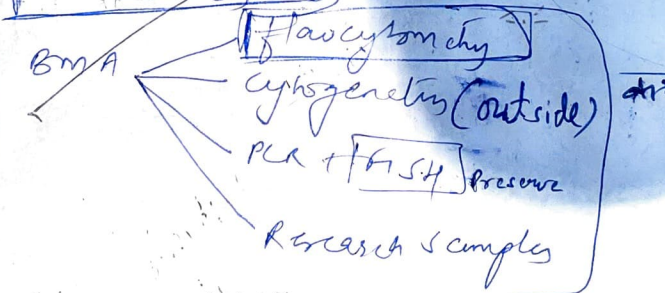 Flowcytometry
BMA
Cytogenetics (outside)
PCR + FISH Preserve
Research Samples